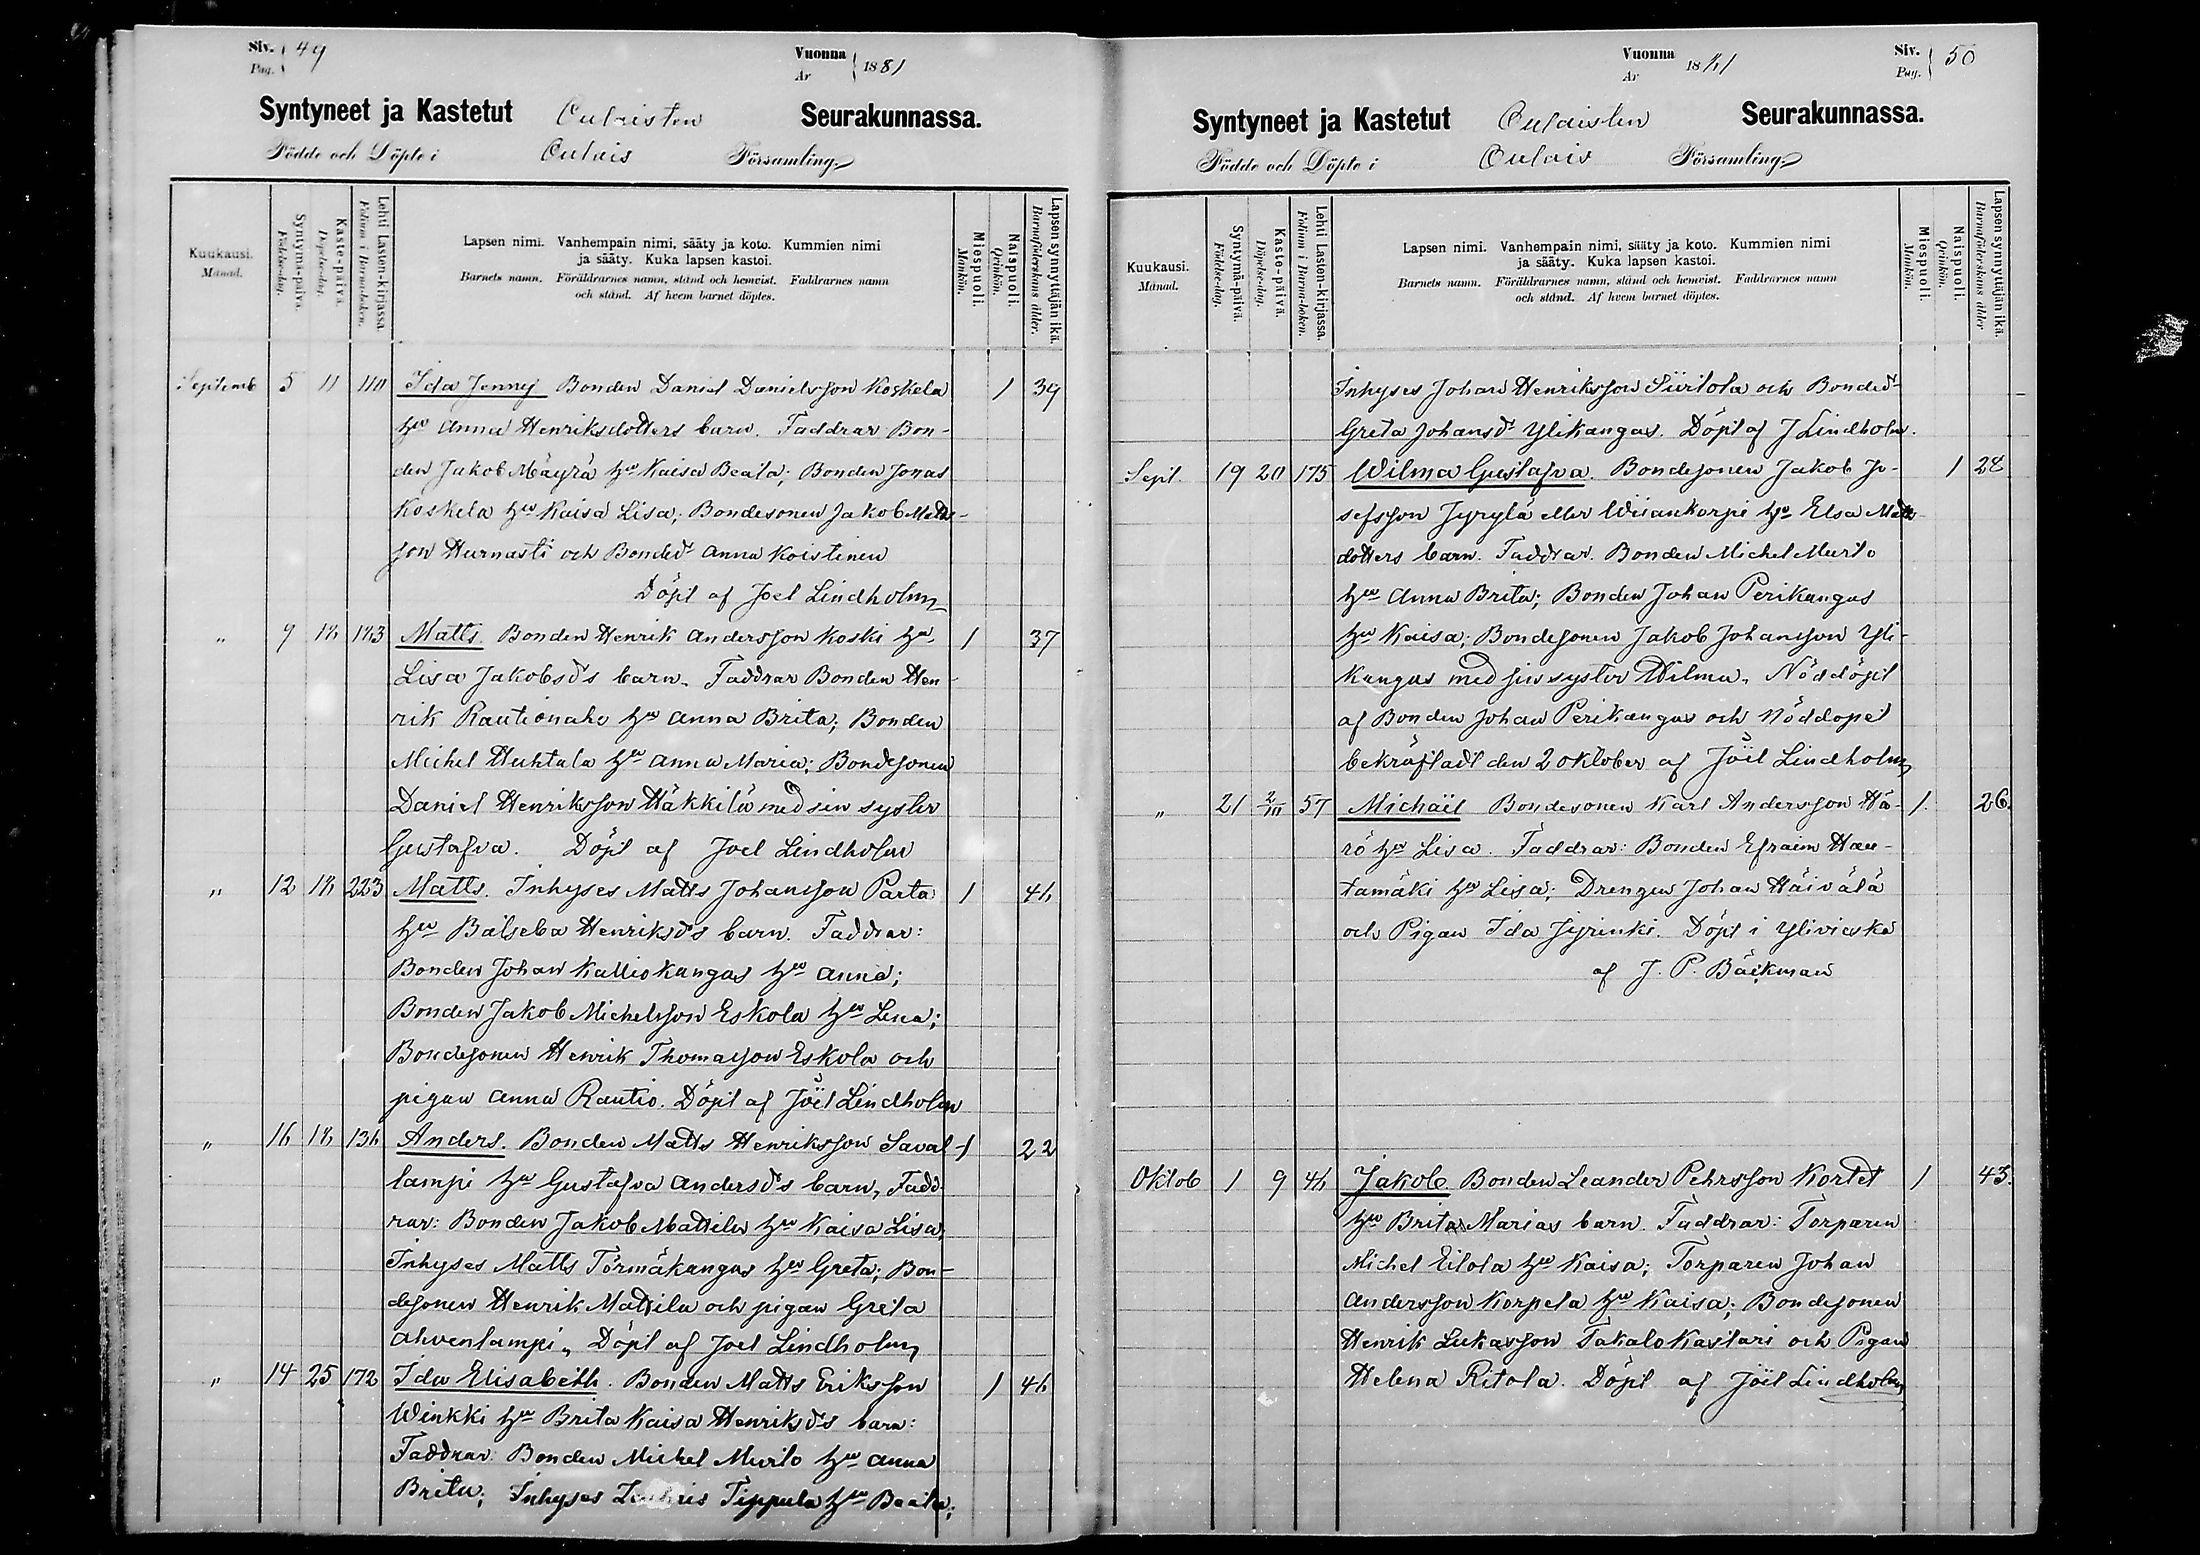 Siv. Pag. 49
Vuonna År 1881
Syntyneet ja Kastetut Oulaisten Seurakunnassa.
Födde och Döpte i Oulais Församling
Kuukausi. Månad.
Syntymä-päivä. Födelse-dag.
Kaste-päivä. Döpelse-dag.
Lehti Lasten-kirjassa. Folium i Barna-boken.
Lapsen nimi. Vanhempain nimi, sääty ja koto. Kummien nimi
ja sääty. Kuka lapsen kastoi.
Barnets namn. Föräldrarnes namn, stånd och hemvist. Faddrarnes namn
och stånd. Af hvem barnet döptes.
Miespuoli. Mankön.
Naispuoli. Qvinkön.
Lapsen synnyttäjän ikä. Barnaföderskans ålder.
Septemb 5 11 110 Ida Jenny Bonden Daniel Danielsson Koskela 1 39
hu Anna Henriksdotters barn. Faddrar Bon-
den Jakob Mäyrä hu Kaisa Beata; Bonden Jonas
Koskela hu Kaisa Lisa; Bondesonen Jakob Matts-
son Hurnasti och Bonded Anna Koistinen
Döpt af Joel Lindholm
" 9 18 183 Matts. Bonden Henrik Andersson Koski hu 1 37
Lisa Jakobsd's barn. Faddrar Bonden Hen-
rik Rautionaho hu Anna Brita; Bonden
Michel Huhtala hu Anna Maria; Bondesonen
Daniel Henriksson Häkkilä med sin syster
Gustafva. Döpt af Joel Lindholm
" 12 18 223 Matts. Inhyses Matts Johansson Parta 1 46
hu Balseba Henriksd's barn. Faddrar:
Bonden Johan Kalliokangas hu Anna;
Bonden Jakob Michelsson Eskola hu Lena;
Bondesonen Henrik Thomasson Eskola och
pigan Anna Rautio. Döpt af Joel Lindholm
" 16 18 136 Anders. Bonden Matts Henriksson Saval- 1 22
lampi hu Gustafva Andersd's barn, Fadd-
rar: Bonden Jakob Mattila hu Kaisa Lisa;
Inhyses Matts Törmäkangas hu Greta; Bon-
desonen Henrik Mattila och pigan Greta
Ahvenlampi. Döpt af Joel Lindholm
" 14 25 172 Ida Elisabeth. Bonden Matts Eriksson 1 46
Winkki hu Brita Kaisa Henriksd's barn:
Faddrar: Bonden Michel Murto hu Anna
Brita; Inhyses Tippula hu Beata;
Vuonna År 1881
Siv. Pag. 50
Syntyneet ja Kastetut Oulaisten Seurakunnassa.
Födde och Döpte i Oulais Församling
Kuukausi. Månad.
Syntymä-päivä. Födelse-dag.
Kaste-päivä. Döpelse-dag.
Lehti Lasten-kirjassa. Folium i Barna-boken.
Lapsen nimi. Vanhempain nimi, sääty ja koto. Kummien nimi
ja sääty. Kuka lapsen kastoi.
Barnets namn. Föräldrarnes namn, stånd och hemvist. Faddrarnes namn
och stånd. Af hvem barnet döptes.
Miespuoli. Mankön.
Naispuoli. Qvinkön.
Lapsen synnyttäjän ikä. Barnaföderskans ålder
Inhyses Johan Henriksson Siirtola och Bonded
Greta Johansd Ylikangas. Döpt af J Lindholm.
Sept. 19 20 175 Wilma Gustafva. Bondesonen Jakob Jo- 1 28
sefsson Jyrylä eller Wiiankorpi hu Elsa Matts-
dotters barn. Faddrar. Bonden Michel Murto
hu Anna Brita; Bonden Johan Perikangas
hu Kaisa; Bondesonen Jakob Johansson Yli-
kangas med sin syster Wilma. Nöddöpt
af Bonden Johan Perikangas och Nöddopet
bekräftadt den 2 oktober af Joël Lindholm
" 21 2/10 57 Michaël Bondesonen Karl Andersson Hä- 1 26
rö hu Lisa. Faddrar: Bonden Efraim Hau-
tamäki hu Lisa; Drengen Johan Häivälä
och Pigan Ida Jyrinki. Döpt i Ylivieska
af J. P. Bäckman
Oktob 1 9 46 Jakob Bonden Leander Pehrsson Kortet 1 43.
hu Brita Marias barn. Faddrar: Torparen
Michel Eilola hu Kaisa; Torparen Johan
Andersson Korpela hu Kaisa; Bondesonen
Henrik Lukasson Takalo Kastari och Pigan
Helena Ritola. Döpt af Joël Lindholm